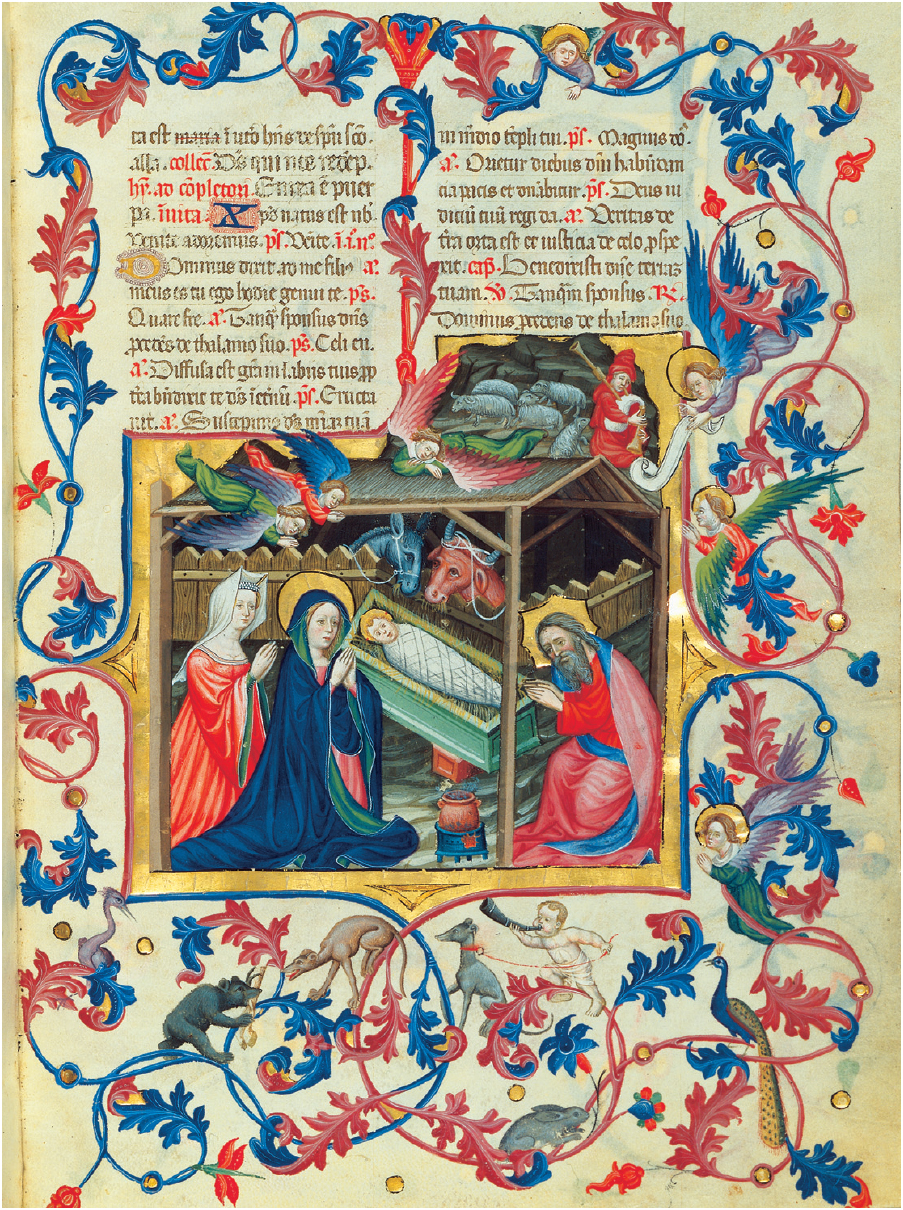 ta est maria ī utō hn̄s de spū scō.
alla. collec̄. Ds̄ qui nos redēp.
hȳ. ad cōpletorī. ē puer
īnita. Xp̄s natus est nb̄.
Venite adoremus. ps̄. Venite. ī. i. n°
Dominus dixit ad me filiꝰ a.
meus es tu ego hodie genui te. ps̄.
Quare fre. a. Tanq̄ sponsus dn̄s
p̄cedēs de thalamo suo. ps̄. Celi en.
a. Diffusa est grā in labiis tuis ꝓp
t̄ea bn̄dixit te ds̄ ī et̄nū. ps̄. Eructa
uit. a. Suscepimꝰ ds̄ miām tuā
in medio tēpli tui. ps̄. Magnus do.
a. Orietur diebus dn̄i habūdan
cia pacis et dn̄abitur. ps̄. Deus iu
diciū tuū regi da. a. Veritas de
t̄ra orta est et iusticia de celo ꝓspe
xit. cap̄. Benedixisti dn̄e terrā
tuam. v. Tanq̄m sponsus. R.
Dominus p̄cedens de thalamo suo